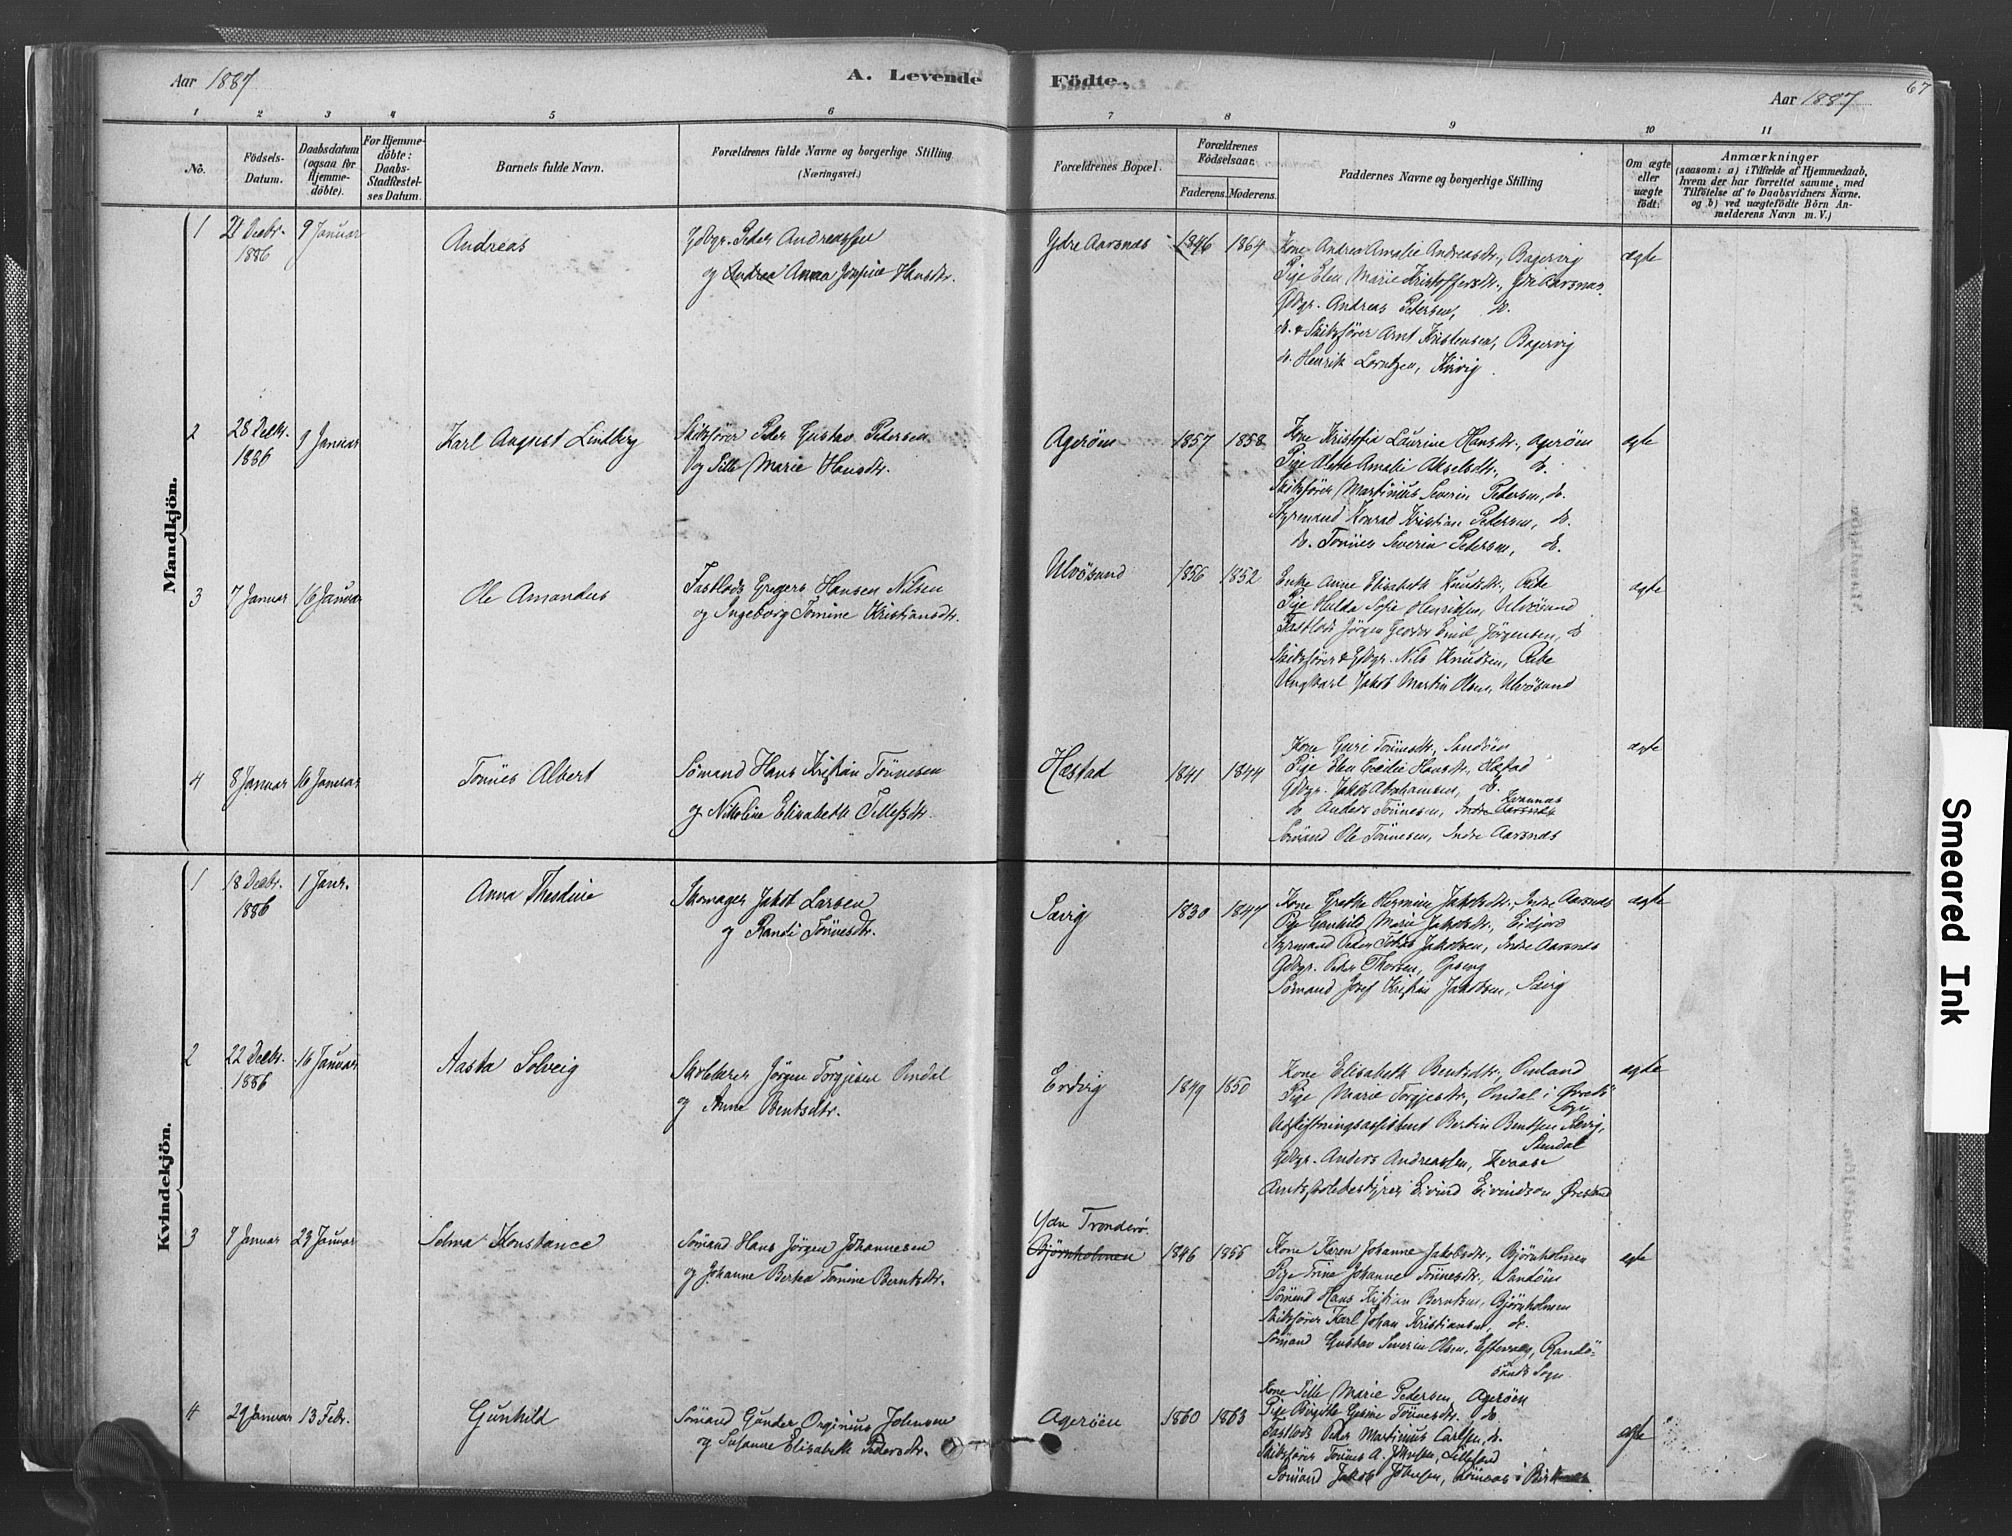 Aar 1887
A. Levende Födte.
Aar 1887
67
1 2 3 4 5 6 7 8 9 10 11
No.
Födsels-Datum.
Daabsdatum (ogsaa for Hjemme-döbte).
For Hjemme-döbte: Daabs-Stadfæstel-ses Datum.
Barnets fulde Navn.
Forældrenes fulde Navne og borgerlige Stilling (Næringsvei.)
Forældrenes Bopæl.
Forældrenes Födselsaar.
Faderens. Moderens.
Faddernes Navne og borgerlige Stilling
Om ægte eller uægte födt.
Anmærkninger
(saasom: a) i Tilfælde af Hjemmedaab,
hvem der har forrettet samme, med
Tilföielse af to Daabsvidners Navne.
og b) ved uægtefödte Börn An-
melderens Navn m. V.)
Mandkjön.
1 21 Decbr. 1886 9 Januar Andreas
Gdbgr. Peder Andreassen
og Andrea Anna Josefine Hansdtr.
Ydre Aarsnes 1846 1864
Kone Andrea Amalie Andreasdtr., Bagervig
Pige Elen Marie Kristoffersdtr., Ydre Aarsnes
Gdbgr. Andreas Petersen, do.
do. & Skibsfører Arnt Kristensen, Bagervig
do. Henrik Lorntzen,
ægte
2 28 Decbr. 1886 9 Januar Karl August Lindberg
Skibsfører Peder Gustav Petersen
og Sille Marie Hansdtr.
Agerøen 1857 1858
Kone Kristofia Laurine Hansdtr., Agerøen
Pige Amalie Akselsdtr., do.
Skibsfører Martinius Severin Petersen, do.
Styrmand Konrad Kristian Petersen, do.
do. Tønnes Severin Petersen, do.
ægte
3 7 Januar 16 Januar Ole Amandus
Fastlods Gregers Hansen Nilsen
og Ingeborg Tomine Kristiansdtr.
Ulvøsund 1856 1852
Enke Anne Elisabeth Knudsdtr.,
Pige Hulda Sofie Henriksen, Ulvøsund
Fastlods Jørgen Emil Jørgensen, do
Skibsfører & Gdbgr. Nils Knudsen,
Ungkarl Jakob Martin Olsen, Ulvøsund
ægte
4 8 Januar 16 Januar Tønnes Albert
Sømand Hans Kristian Tønnesen
og Nikoline Elisabeth Tellefsdtr.
Hæstad 1841 1844
Kone Guri Tønnesdtr., Sandøen
Pige Elen Cecilie Hansdtr., Hæstad
Gdbgr. Jakob Abrahamsen, do.
do. Anders Tønnesen, Indre Aarsnes Kvannes
Sømand Ole Tønnesen, Indre Aarsnes
ægte
Kvindekjön.
1 18 Decbr. 1886 1 Janr. Anna Thesdine
Skomager Jakob Larsen
og Randi Tønnesdtr.
Sævig 1830 1847
Kone Grethe Hermine Jakobsdtr., Indre Aarsnes
Pige Gunhild Marie Jakobsdtr., Eidjord
Styrmand Peder Tobias Jakobsen, Indre Aarsnes
Gdbgr. Peder Thorsen,
Sømand Josef Kristian Jakobsen, Sævig
ægte
2 22 Decbr. 1886 16 Januar Aasta Solveig
Skolelærer Jørgen Torgjusen Omdal
og Anne Bentsdtr.
Erdvig 1849 1850
Kone Elisabeth Bentsdtr., Omland
Pige Marie Torgjesdtr., Omdal i Øvrebø
Sogn
Udskiftningsassistent Bertin Bentsen Sævig,
Stendal
Gdbgr. Anders Andreassen, Kvaase
Amtsskolebestyrer Eivind Eivindson Øvesland
ægte
3 7 Januar 23 Januar Selma Konstance
Sømand Hans Jørgen Johannesen
og Johanne Bertea Tomine Berntsdtr.
Ydre Tronderø
Bjørnholmen 1846 1855
Kone Karen Johanne Jakobsdtr., Bjørnholmen
Pige Trine Johanne Tønnesdtr., Sandøen
Sømand Hans Kristian Berntsen, Bjørnholmen
Skibsfører Karl Johan Kristiansen, do.
Sømand Gustav Severin Olsen, Eftevaag, Randø-
sunds Sogn.
ægte
4 29 Januar 13 Febr. Gunhild
Sømand Gunder Johnsen
og Susanne Elisabeth Pedersdtr.
Agerøen 1860 1863
Kone Sille Marie Petersen, Agerøen
Pige Birgitte Gesine Tønnesdtr. do
Fastlods Peder Martinius Carlsen, do.
Skibsfører Tønnes A. Johnsen, Lillesand
Sømand Jakob Johnsen, i
ægte
Smeared Ink